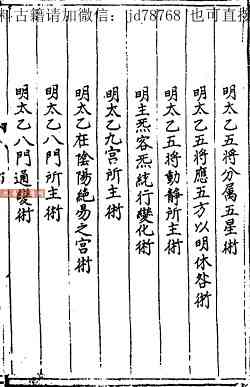 料古籍请加微信：jd78768 也可直接
明太乙五将分属五星術
明太乙五将應五方以明休咎術
明太乙五将動静所主術
明主炁容炁統行變化術
明太乙九宫所主術
明太乙在陰陽絶易之宫術
明太乙八門所主術
明太乙八門通變術